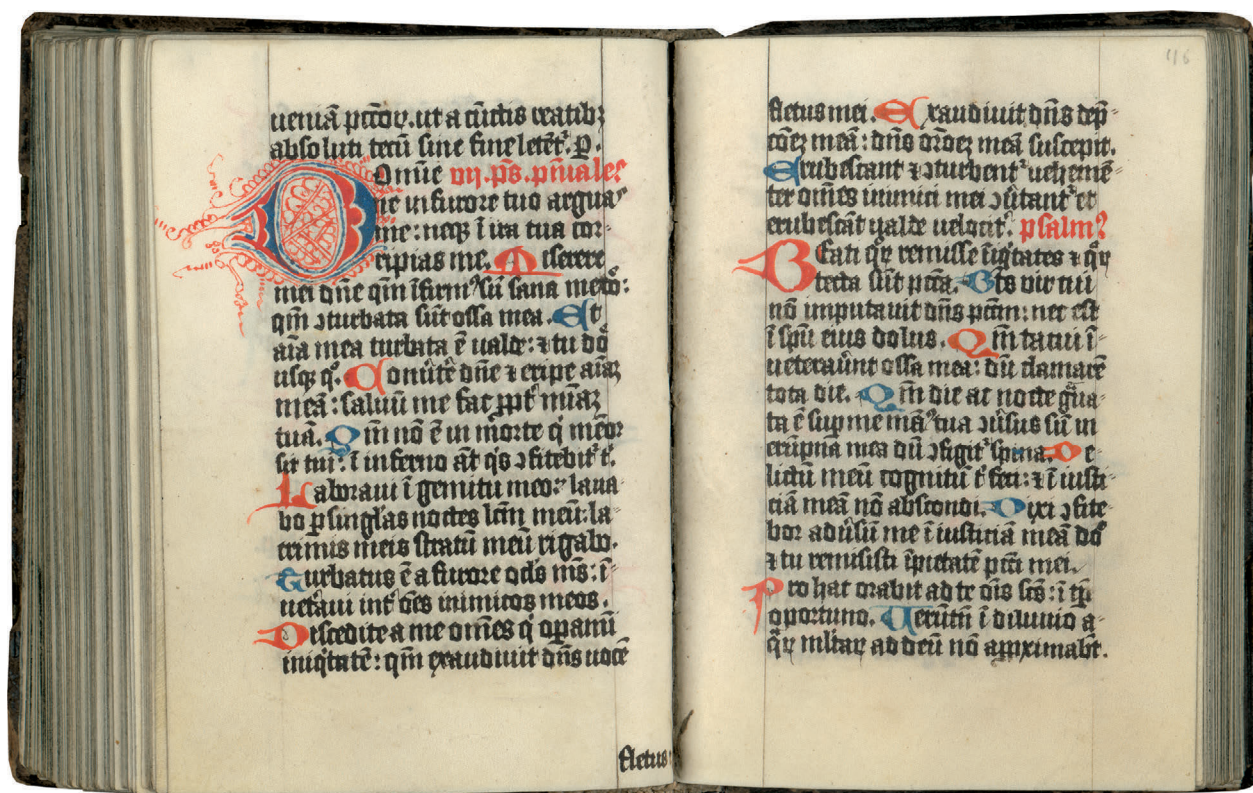 ueniā pccōꝝ. ut a cūctis reatibꝫ
absoluti tecū sine fine letēt᷑. P.
Domīe vıȷ. ps̄. pn̄iales
ne in furore tuo arguas
me: neqꝫ ī ira tua cor-
ripias me. Miserere
mei dn̄e qm̄ īfirmꝰ sū sana me dō:
qm̄ ꝯturbata sūt ossa mea. Et
aīa mea turbata ē ualde: ⁊ tu dō
usqꝫ qͦ. Conūt̄e dn̄e ⁊ eripe aīaꝫ
meā: saluū me fac ꝓpt̄ mīaꝫ
tuā. Qm̄ nō ē in morte qͥ meōr
sit tui: ī inferno āt qͥs ꝯfitebit᷑ tͥ.
Laboraui ī gemitu meo: laua-
bo ꝑ singl̄as noctes lcm̄ meū: la-
crimis meis stratū meū rigabo.
Turbatus ē a furore ocl̄s ms̄: ī-
uet̄aui int̄ ōēs inimicos meos.
Discedite a me om̄es qͥ oꝑamī
iniqͥtatē: qm̄ exaudiuit dn̄s uocē
fletus
fletus mei. Exaudiuit dn̄s dep̄-
cōēꝫ meā: dn̄s or̄oēꝫ meā suscepit.
Erubescant ⁊ ꝯturbent᷑ uehemē-
ter om̄es inimici mei ꝯūtant᷑ et
erubescāt ualde uelocit̄. psalmꝰ
Beati qͦꝝ remisse sūt īiqͥtates ⁊ qͦꝝ
tecta sūt pccā. Bt̄s vir cui
nō imputauit dn̄s pccm̄: nec est
ī spū eius dolus. Qm̄ tacui ī-
ueteraūnt ossa mea: dū clamarē
tota die. Qm̄ die ac nocte gͣua-
ta ē suꝑ me manꝰ tua ꝯūsus sū in
erūpna mea dū ꝯfigit᷑ spina. De-
lictū meū cognitū tͥ feci: ⁊ ī iusti-
ciā meā nō abscondi. Dixi ꝯfite-
bor aduͥsū me īiusticiā meā dō
⁊ tu remisisti īpietatē pccī mei.
Pro hac orabit ad te ōīs scs̄: ī tp̄
oportuno. Uerūtn̄ ī diluuio a-
qͣꝝ ml̄taꝝ ad deū nō aꝓximabūt.